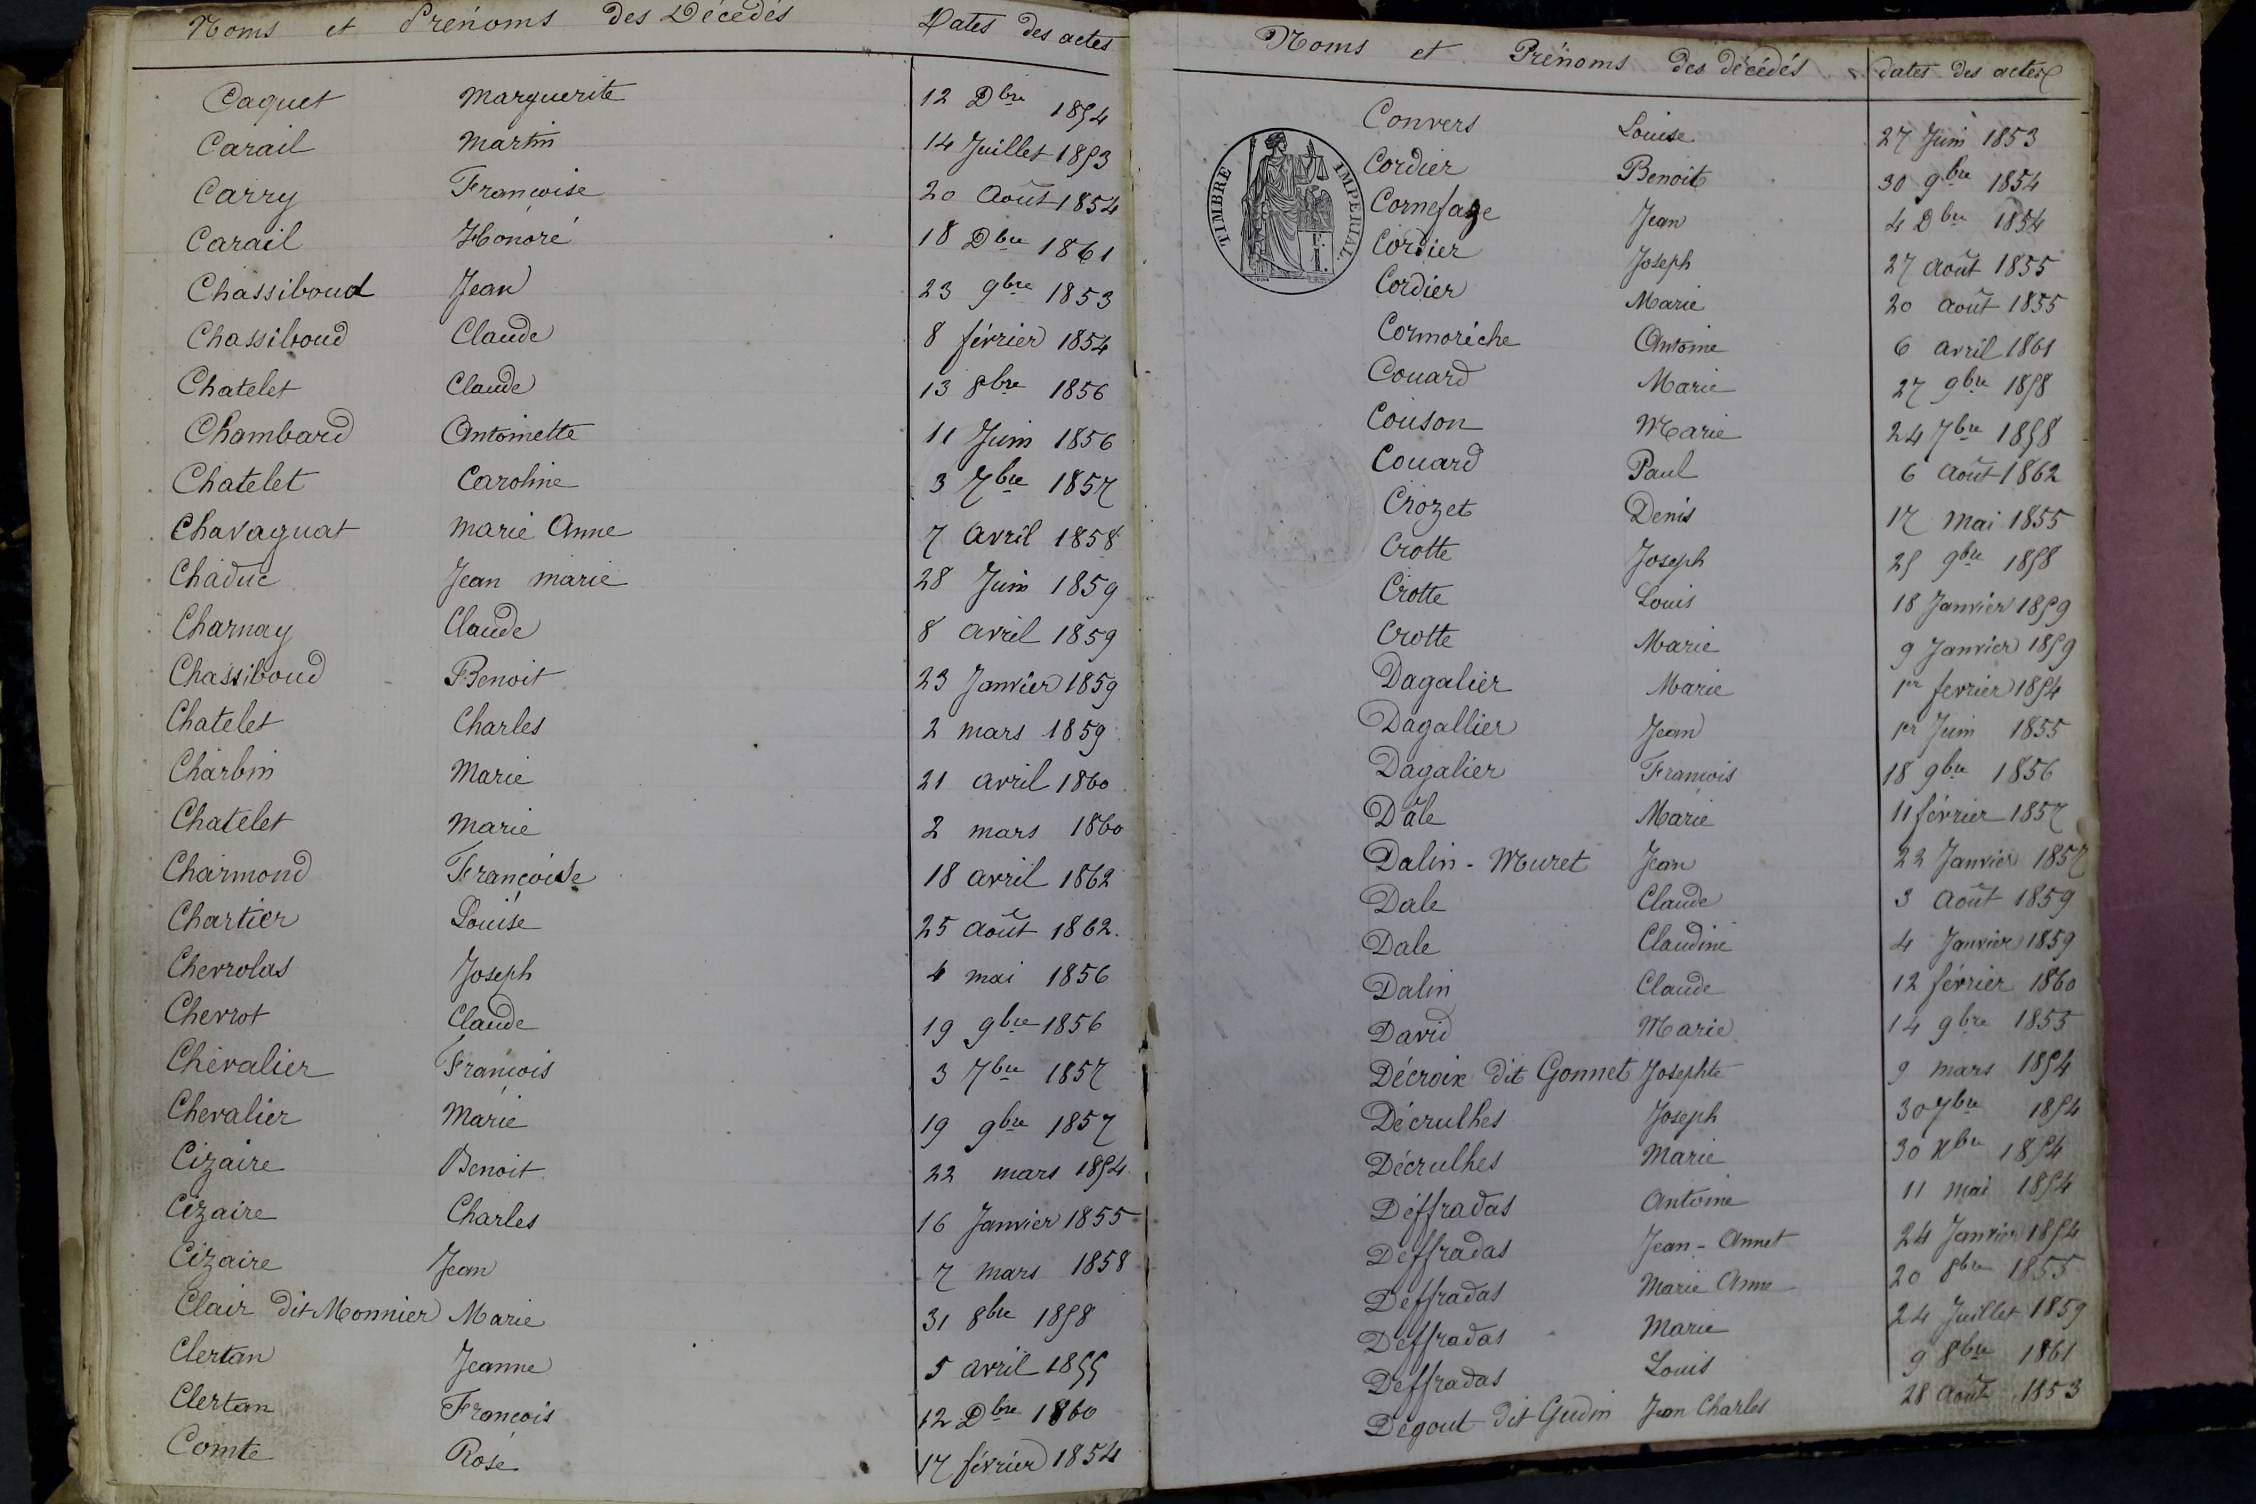 Noms et Prénoms des Décédés Dates des actes
Caquet Marguerite 12 Dbre 1854
Carail Martin 14 Juillet 1853
Carry Françoise 20 Août 1854
Carail Honoré 18 Dbre 1861
Chassiboud Jean 23 9bre 1853
Chassiboud Claude 8 février 1854
Chatelet Claude 13 8bre 1856
Chambard Antoinette 11 Juin 1856
Chatelet Caroline 3 7bre 1857
Chavagnat Marie Anne 7 Avril 1858
Chaduc Jean Marie 28 Juin 1859
Charnay Claude 8 avril 1859
Chassiboud Benoit 23 Janvier 1859
Chatelet Charles 2 mars 1859
Charbin Marie 21 avril 1860
Chatelet Marie 2 mars 1860
Charmond Françoise 18 avril 1862
Chartier Louise 25 août 1862.
Chevrolas Joseph 4 mai 1856
Chevrot Claude 19 9bre 1856
Chevalier François 3 7bre 1857
Chevalier Marie 19 9bre 1857
Cizaire Benoit 22 mars 1854
Cizaire Charles 16 Janvier 1855
Cizaire Jean 7 mars 1858
Clair dit Monnier Marie 31 8bre 1858
Clertan Jeanne 5 avril 1855
Clertan François 12 Dbre 1860
Comte Rose 17 février 1854
Noms et Prénoms des décédés dates des actes
TIMBRE IMPERIAL.
Convers Louise 27 Juin 1853
Cordier Benoit 30 9bre 1854
Cornefage Jean 4 Dbre 1854
Cordier Joseph 27 août 1855
Cordier Marie 20 août 1855
Cormorèche Antoine 6 avril 1861
Couard Marie 27 9bre 1858
Couson Marie 24 7bre 1858
Couard Paul 6 Août 1862
Crozet Denis 17 Mai 1855
Crotte Joseph 25 9bre 1858
Crotte Louis 18 Janvier 1859
Crotte Marie 9 Janvier 1859
Dagalier Marie 1er fevrier 1854
Dagallier Jean 1er Juin 1855
Dagalier François 18 9bre 1856
Dâle Marie 11 février 1857
Dalin - Muret Jean 22 Janvier 1857
Dale Claude 3 Août 1859
Dale Claudine 4 Janvier 1859
Dalin Claude 12 février 1860
David Marie 14 9bre 1855
Décroix dit Gonnet Josephte 9 mars 1854
Décrulhes Joseph 30 7bre 1854
Décrulhes Marie 30 Xbre 1854
Déffradas Antoine 11 mai 1854
Déffradas Jean - Annet 24 Janvier 1854
Déffradas Marie Anne 20 8bre 1855
Déffradas Marie 24 Juillet 1859
Déffradas Louis 9 8bre 1861
Dégout dit Gudin Jean Charles 28 août 1853